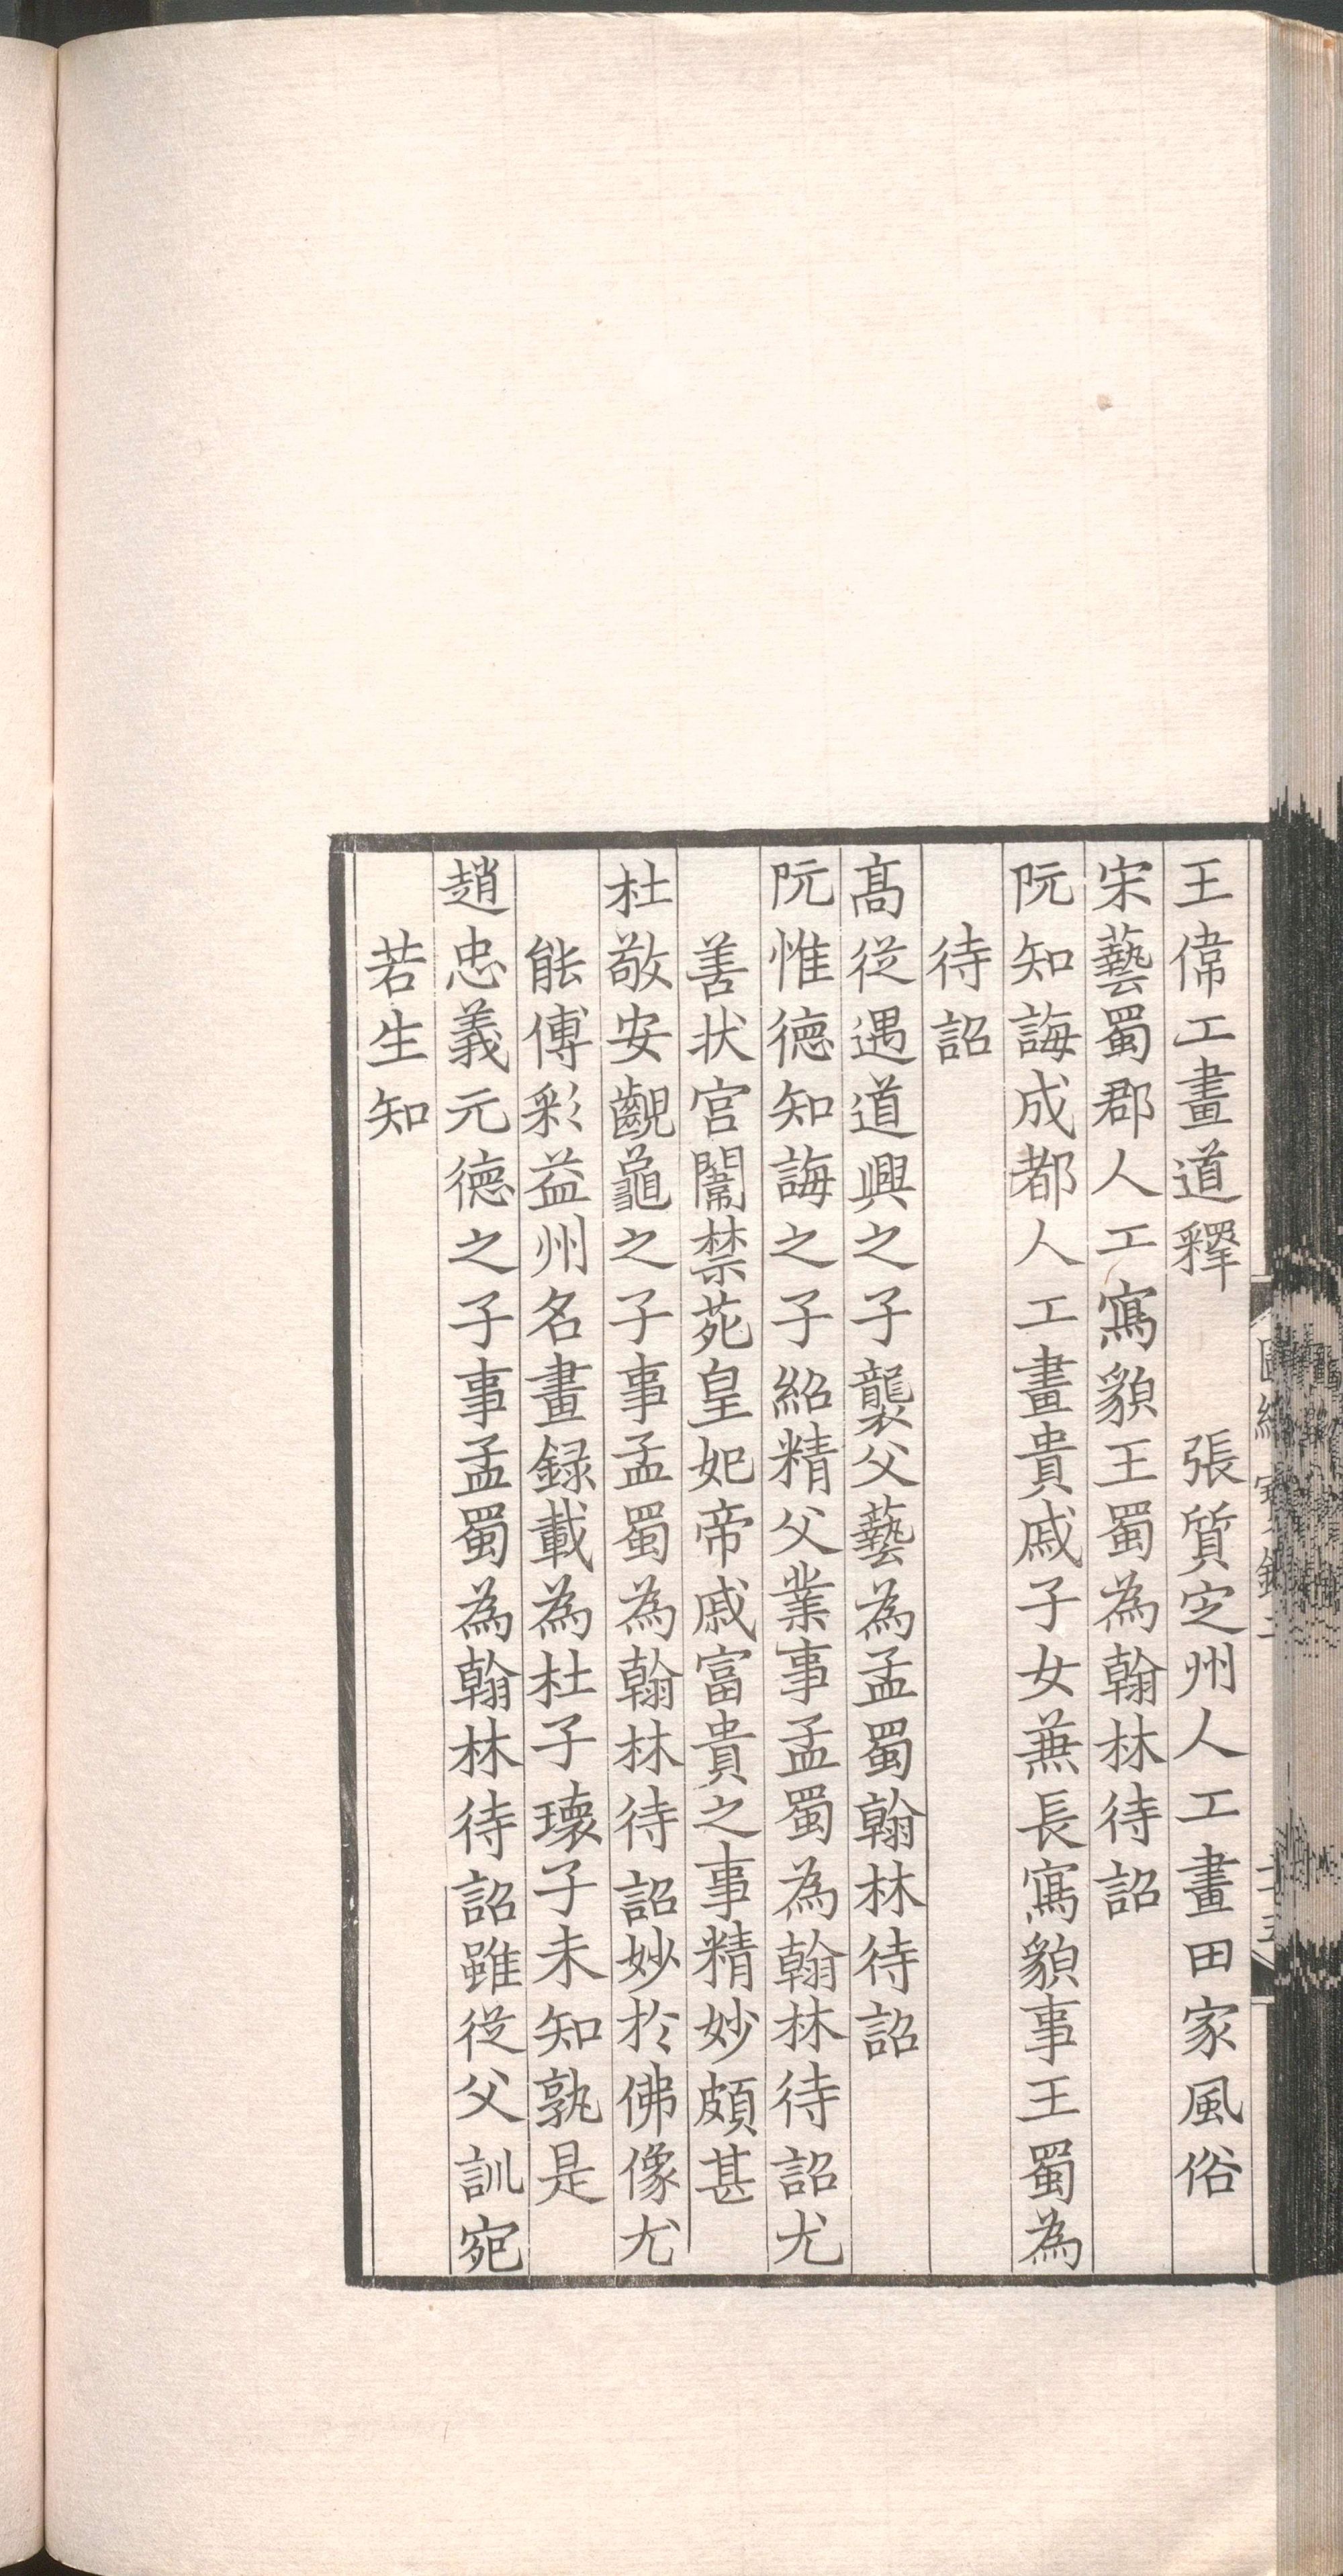 王偉工畫道釋　張質定州人工畫田家風俗
宋藝蜀郡人工寫貌王蜀為翰林待詔
阮知誨成都人工畫貴戚子女兼長寫貌事王蜀為
待詔
高從遇道興之子襲父藝為孟蜀翰林待詔
阮惟德知誨之子紹精父業事孟蜀為翰林待詔尤
善狀宮闈禁苑皇妃帝戚富貴之事精妙頗甚
杜敬安齯龜之子事孟蜀為翰林待詔妙於佛像尤
能傅彩益州名畫錄載為杜子瓌子未知孰是
趙忠義元德之子事孟蜀為翰林待詔雖從父訓宛
若生知